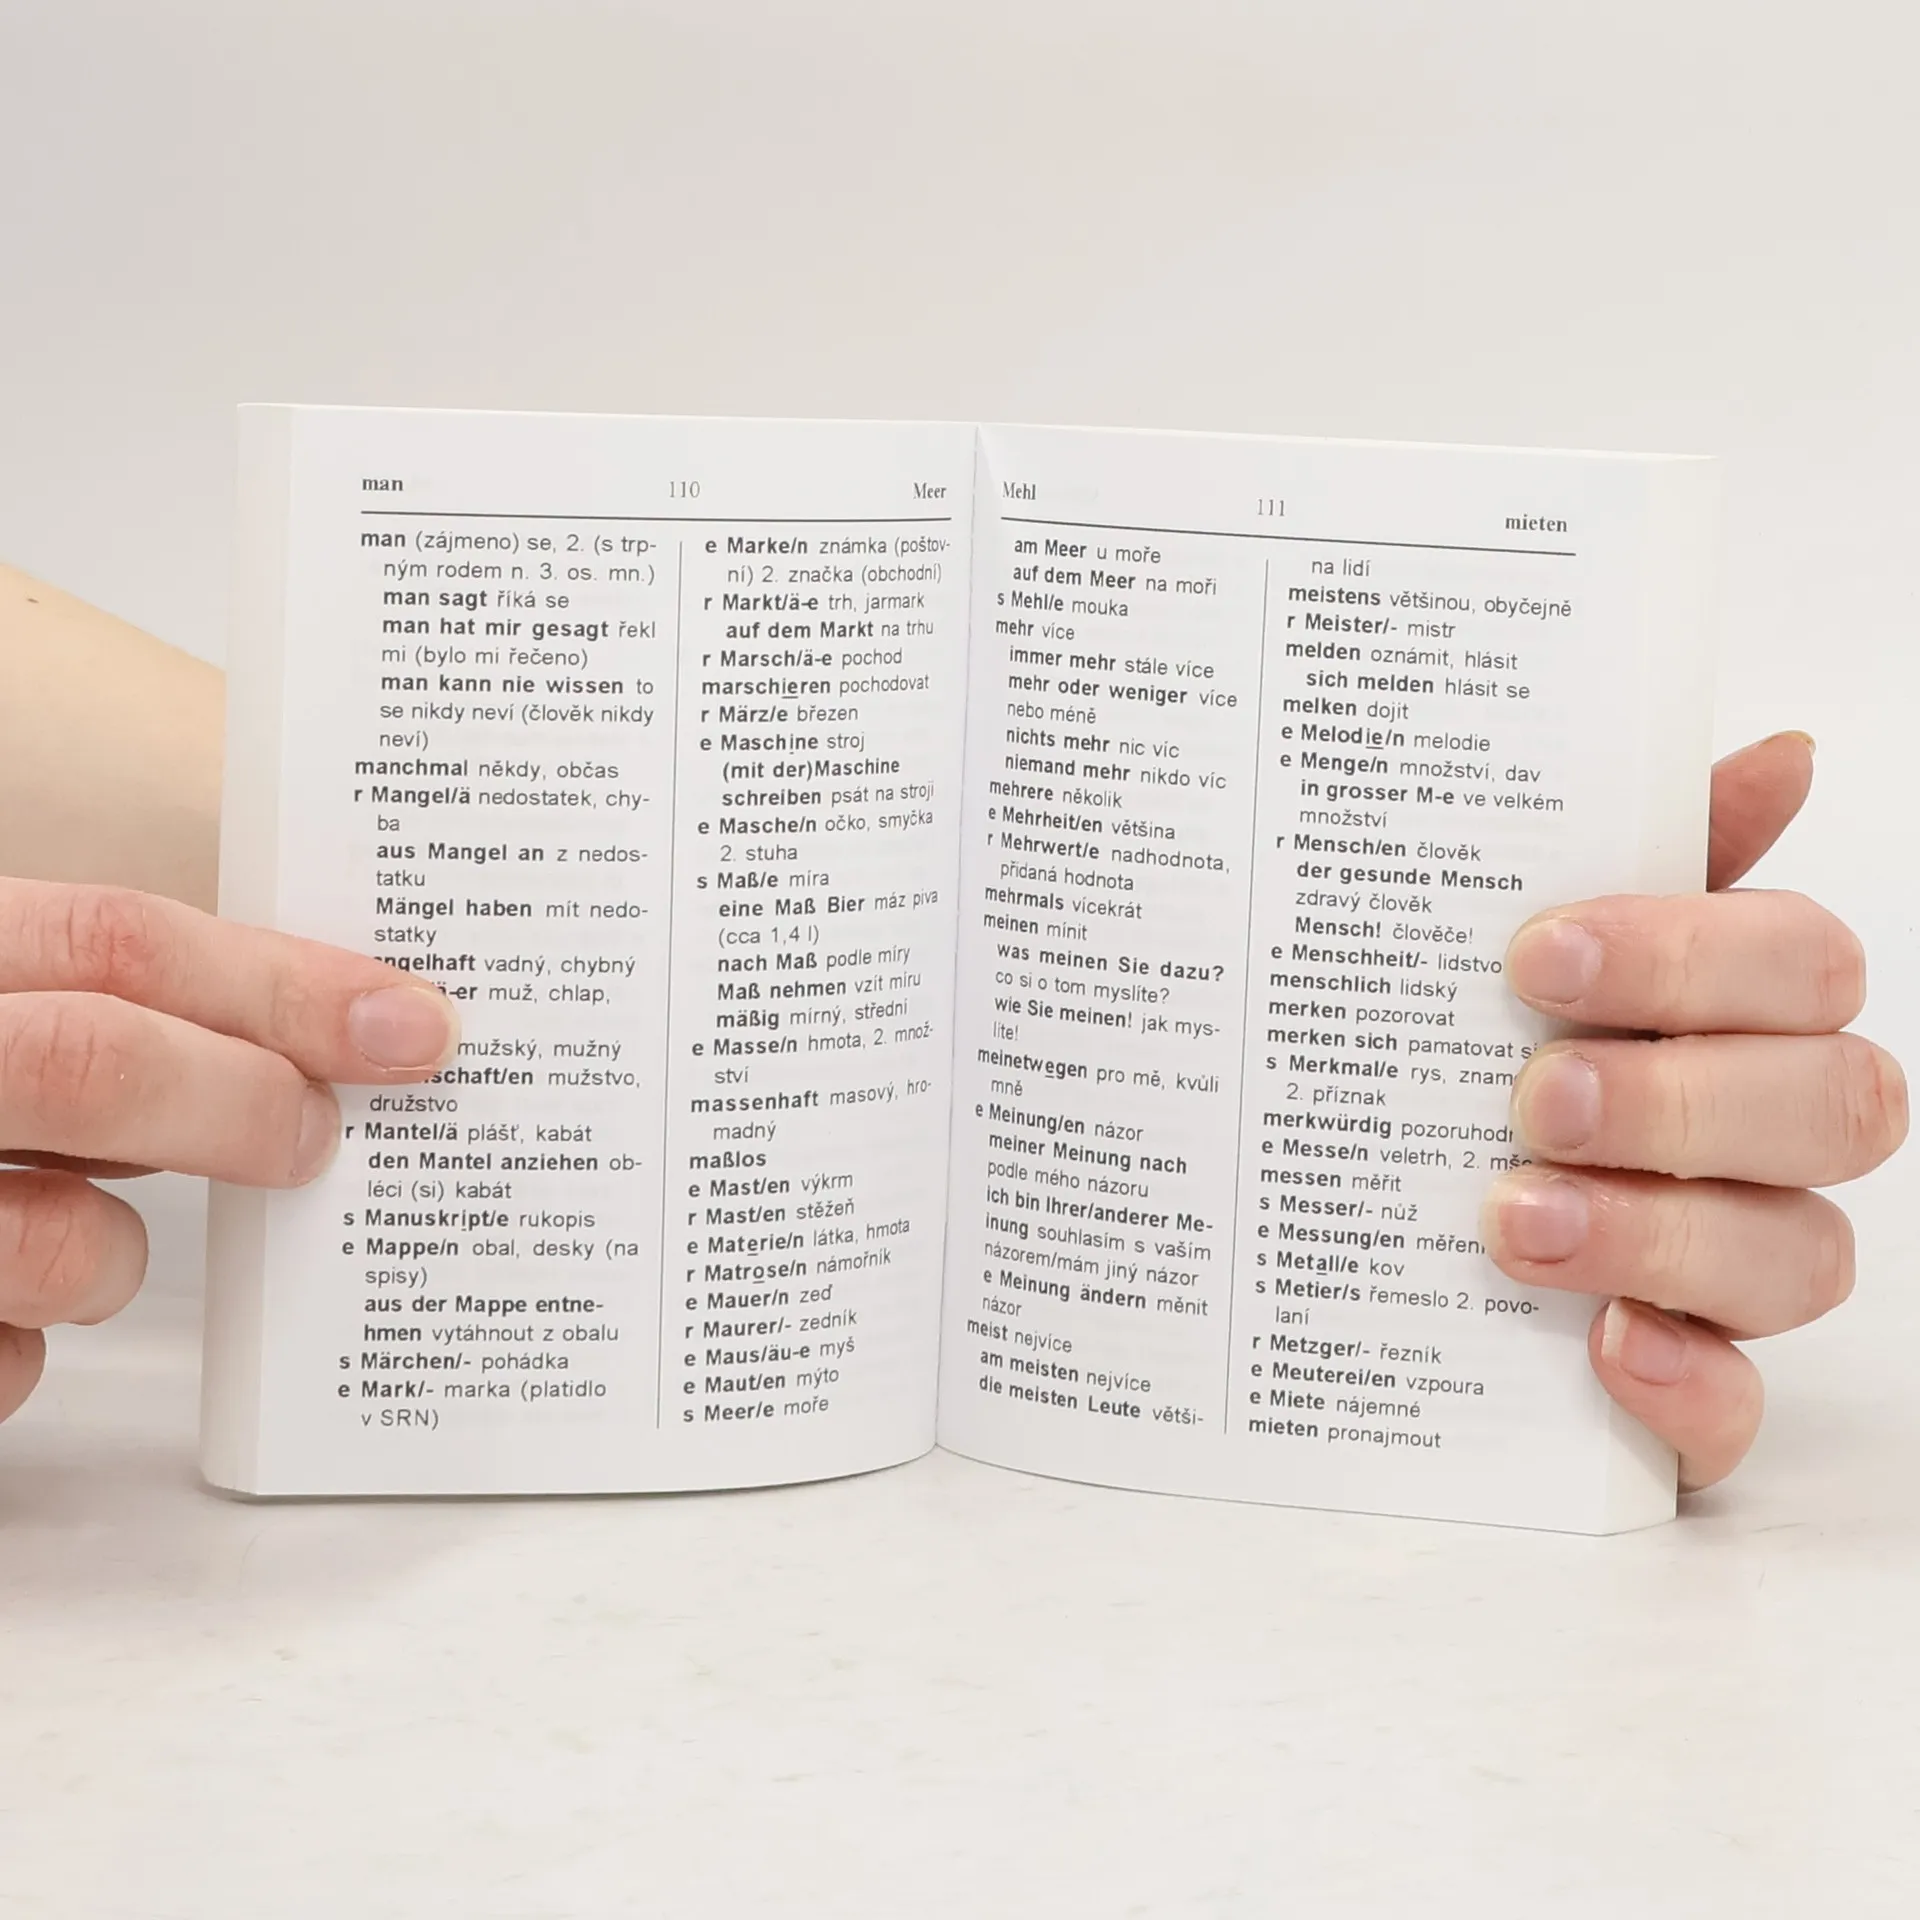 man 110 Meer
man (zájmeno) se, 2. (s trp-
ným rodem n. 3. os. mn.)
man sagt říká se
man hat mir gesagt řekl
mi (bylo mi řečeno)
man kann nie wissen to
se nikdy neví (člověk nikdy
neví)
manchmal někdy, občas
r Mangel/ä nedostatek, chy-
ba
aus Mangel an z nedos-
tatku
Mängel haben mít nedo-
statky
vadný, chybný
muž, chlap,
mužský, mužný
mužstvo,
družstvo
r Mantel/ä plášť, kabát
den Mantel anziehen ob-
léci (si) kabát
s Manuskript/e rukopis
e Mappe/n obal, desky (na
spisy)
aus der Mappe entne-
hmen vytáhnout z obalu
s Märchen/- pohádka
e Mark/- marka (platidlo
v SRN)
e Marke/n známka (poštov-
ní) 2. značka (obchodní)
r Markt/ä-e trh, jarmark
auf dem Markt na trhu
r Marsch/ä-e pochod
marschieren pochodovat
r März/e březen
e Maschine stroj
(mit der)Maschine
schreiben psát na stroji
e Masche/n očko, smyčka
2. stuha
s Maß/e míra
eine Maß Bier máz piva
(cca 1,4 l)
nach Maß podle míry
Maß nehmen vzít míru
mäßig mírný, střední
e Masse/n hmota, 2. množ-
ství
massenhaft masový, hro-
madný
maßlos
e Mast/en výkrm
r Mast/en stěžeň
e Materie/n látka, hmota
r Matrose/n námořník
e Mauer/n zeď
r Maurer/- zedník
e Maus/äu-e myš
e Maut/en mýto
s Meer/e moře
Mehl 111 mieten
am Meer u moře
auf dem Meer na moři
s Mehl/e mouka
mehr více
immer mehr stále více
mehr oder weniger více
nebo méně
nichts mehr nic víc
niemand mehr nikdo víc
mehrere několik
e Mehrheit/en většina
r Mehrwert/e nadhodnota,
přidaná hodnota
mehrmals vícekrát
meinen mínit
was meinen Sie dazu?
co si o tom myslíte?
wie Sie meinen! jak mys-
líte!
meinetwegen pro mě, kvůli
mně
e Meinung/en názor
meiner Meinung nach
podle mého názoru
ich bin Ihrer/anderer Me-
inung souhlasím s vaším
názorem/mám jiný názor
e Meinung ändern měnit
názor
meist nejvíce
am meisten nejvíce
die meisten Leute větši-
na lidí
meistens většinou, obyčejně
r Meister/- mistr
melden oznámit, hlásit
sich melden hlásit se
melken dojit
e Melodie/n melodie
e Menge/n množství, dav
in grosser M-e ve velkém
množství
r Mensch/en člověk
der gesunde Mensch
zdravý člověk
Mensch! člověče!
e Menschheit/- lidstvo
menschlich lidský
merken pozorovat
merken sich pamatovat
s Merkmal/e rys,
2. příznak
merkwürdig
e Messe/n veletrh, 2.
messen měřit
s Messer/- nůž
e Messung/en
s Metall/e kov
s Metier/s řemeslo 2. povo-
laní
r Metzger/- řezník
e Meuterei/en vzpoura
e Miete nájemné
mieten pronajmout